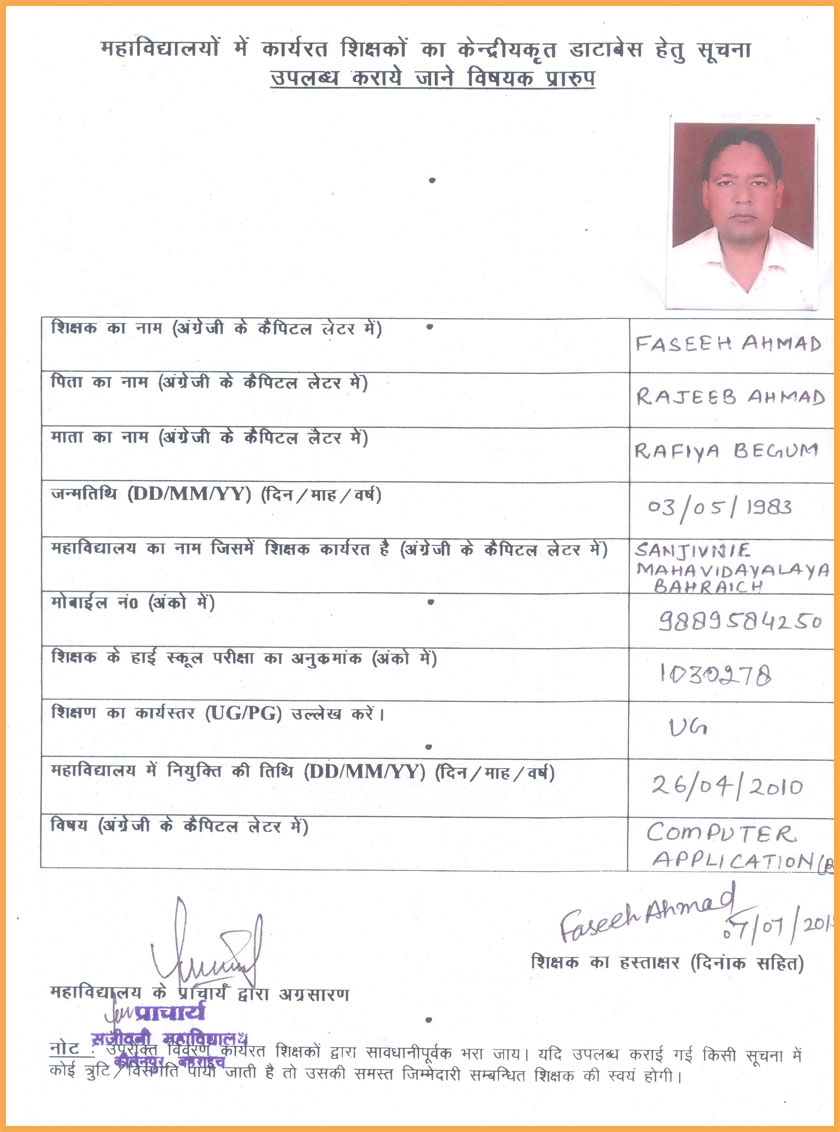 महाविद्यालयों में कार्यरत शिक्षकों का केन्द्रीयकृत डाटाबेस हेतु सूचना
उपलब्ध कराये जाने विषयक प्रारुप
शिक्षक का नाम (अंग्रेजी के कैपिटल लेटर में)
FASEEH AHMAD
पिता का नाम (अंग्रेजी के कैपिटल लेटर में)
RAJEEB AHMAD
माता का नाम (अंग्रेजी के कैपिटल लैटर में)
RAFIYA BEGUM
जन्मतिथि (DD/MM/YY) (दिन/माह/वर्ष)
03/05/1983
महाविद्यालय का नाम जिसमें शिक्षक कार्यरत है (अंग्रेजी के कैपिटल लेटर में)
SANJIVNIE
MAHAVIDAYALAYA
BAHRAICH
मोबाईल नं0 (अंको में)
9889584250
शिक्षक के हाई स्कूल परीक्षा का अनुकमांक (अंको में)
1030278
शिक्षण का कार्यस्तर (UG/PG) उल्लेख करें।
UG
महाविद्यालय में नियुक्ति की तिथि (DD/MM/YY) (दिन/माह/वर्ष)
26/04/2010
विषय (अंग्रेजी के कैपिटल लेटर में)
COMPUTER
APPLICATION(B
Faseeh Ahmad
07/07/201
शिक्षक का हस्ताक्षर (दिनांक सहित)
महाविद्यालय के प्राचार्य द्वारा अग्रसारण
प्राचार्य
सजीवनी महाविद्यालय
नोट : उपरोक्त विवरण कार्यरत शिक्षकों द्वारा सावधानीपूर्वक भरा जाय। यदि उपलब्ध कराई गई किसी सूचना में
कोई त्रुटि/विसंगति पायी जाती है तो उसकी समस्त जिम्मेदारी सम्बन्धित शिक्षक की स्वयं होगी।